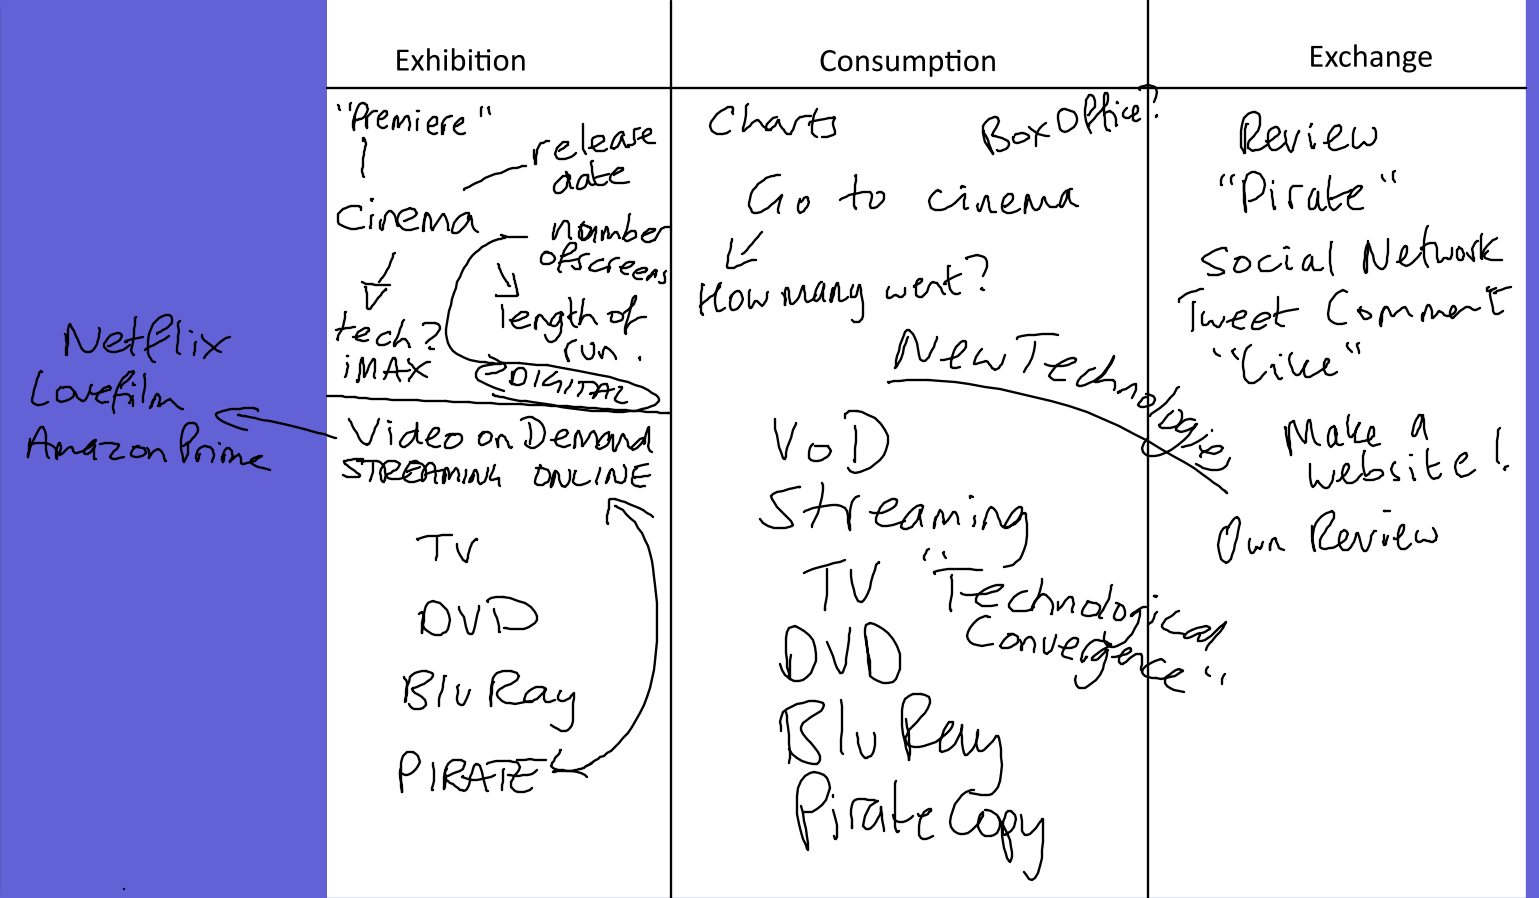 Exhibition
Consumption
Exchange
"Premiere"
release
date
Cinema
number
of screens
length of
run.
tech?
iMAX
DIGITAL
Video on Demand
STREAMING ONLINE
Netflix
Lovefilm
Amazon Prime
TV
DVD
Blu Ray
PIRATE
Charts
Box Office?
Go to cinema
How many went?
New Technologies
VoD
Streaming
TV
"Technological
Convergence"
DVD
Blu Ray
Pirate Copy
Review
"Pirate"
Social Network
Tweet Comment
"Like"
Make a
website!
Own Review